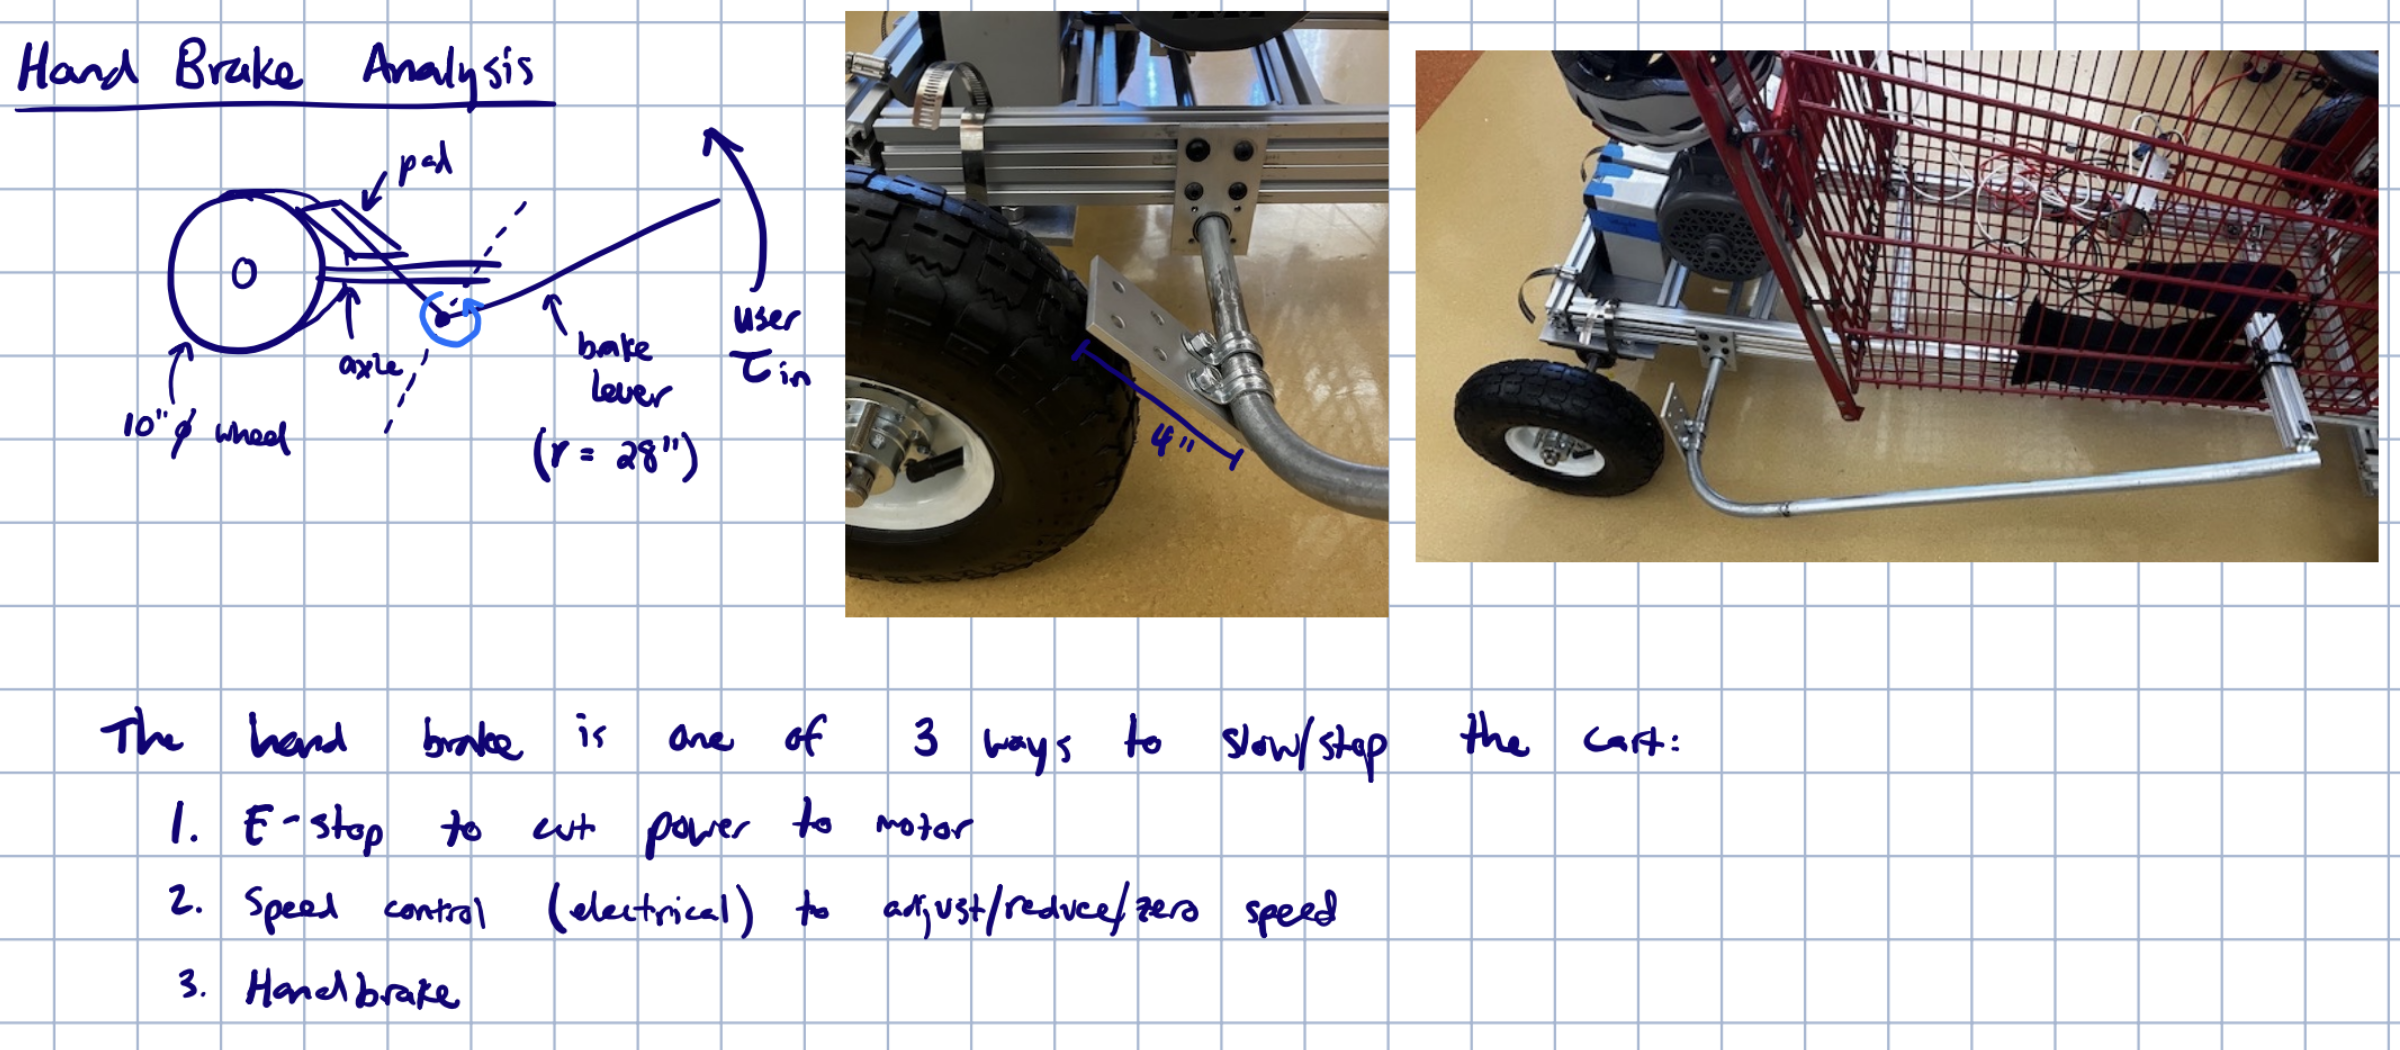 Hand Brake Analysis
pad
user
τin
brake
lever
(r = 28")
axle
10" ϕ wheel
4"
The hand brake is one of 3 ways to slow/stop the cart:
1. E-stop to cut power to motor
2. Speed control (electrical) to adjust/reduce/zero speed
3. Handbrake